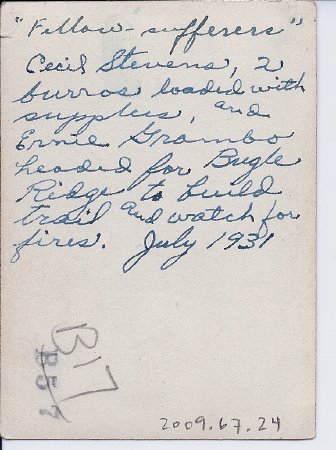 "Fellow-sufferers"
Cecil Stevens, 2
burros loaded with
supplies, and
Ernie Grambo
headed for Bugle
Ridge to build
trail and watch for
fires. July 1931
B17
B57
2009.67.24